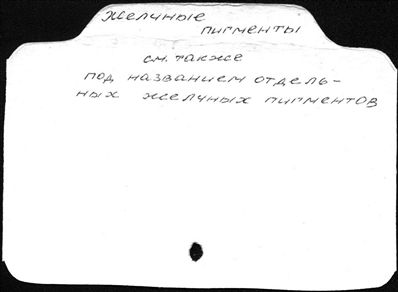 Желчные
пигменты
см. также
под названием отдель-
ных желчных пигментов